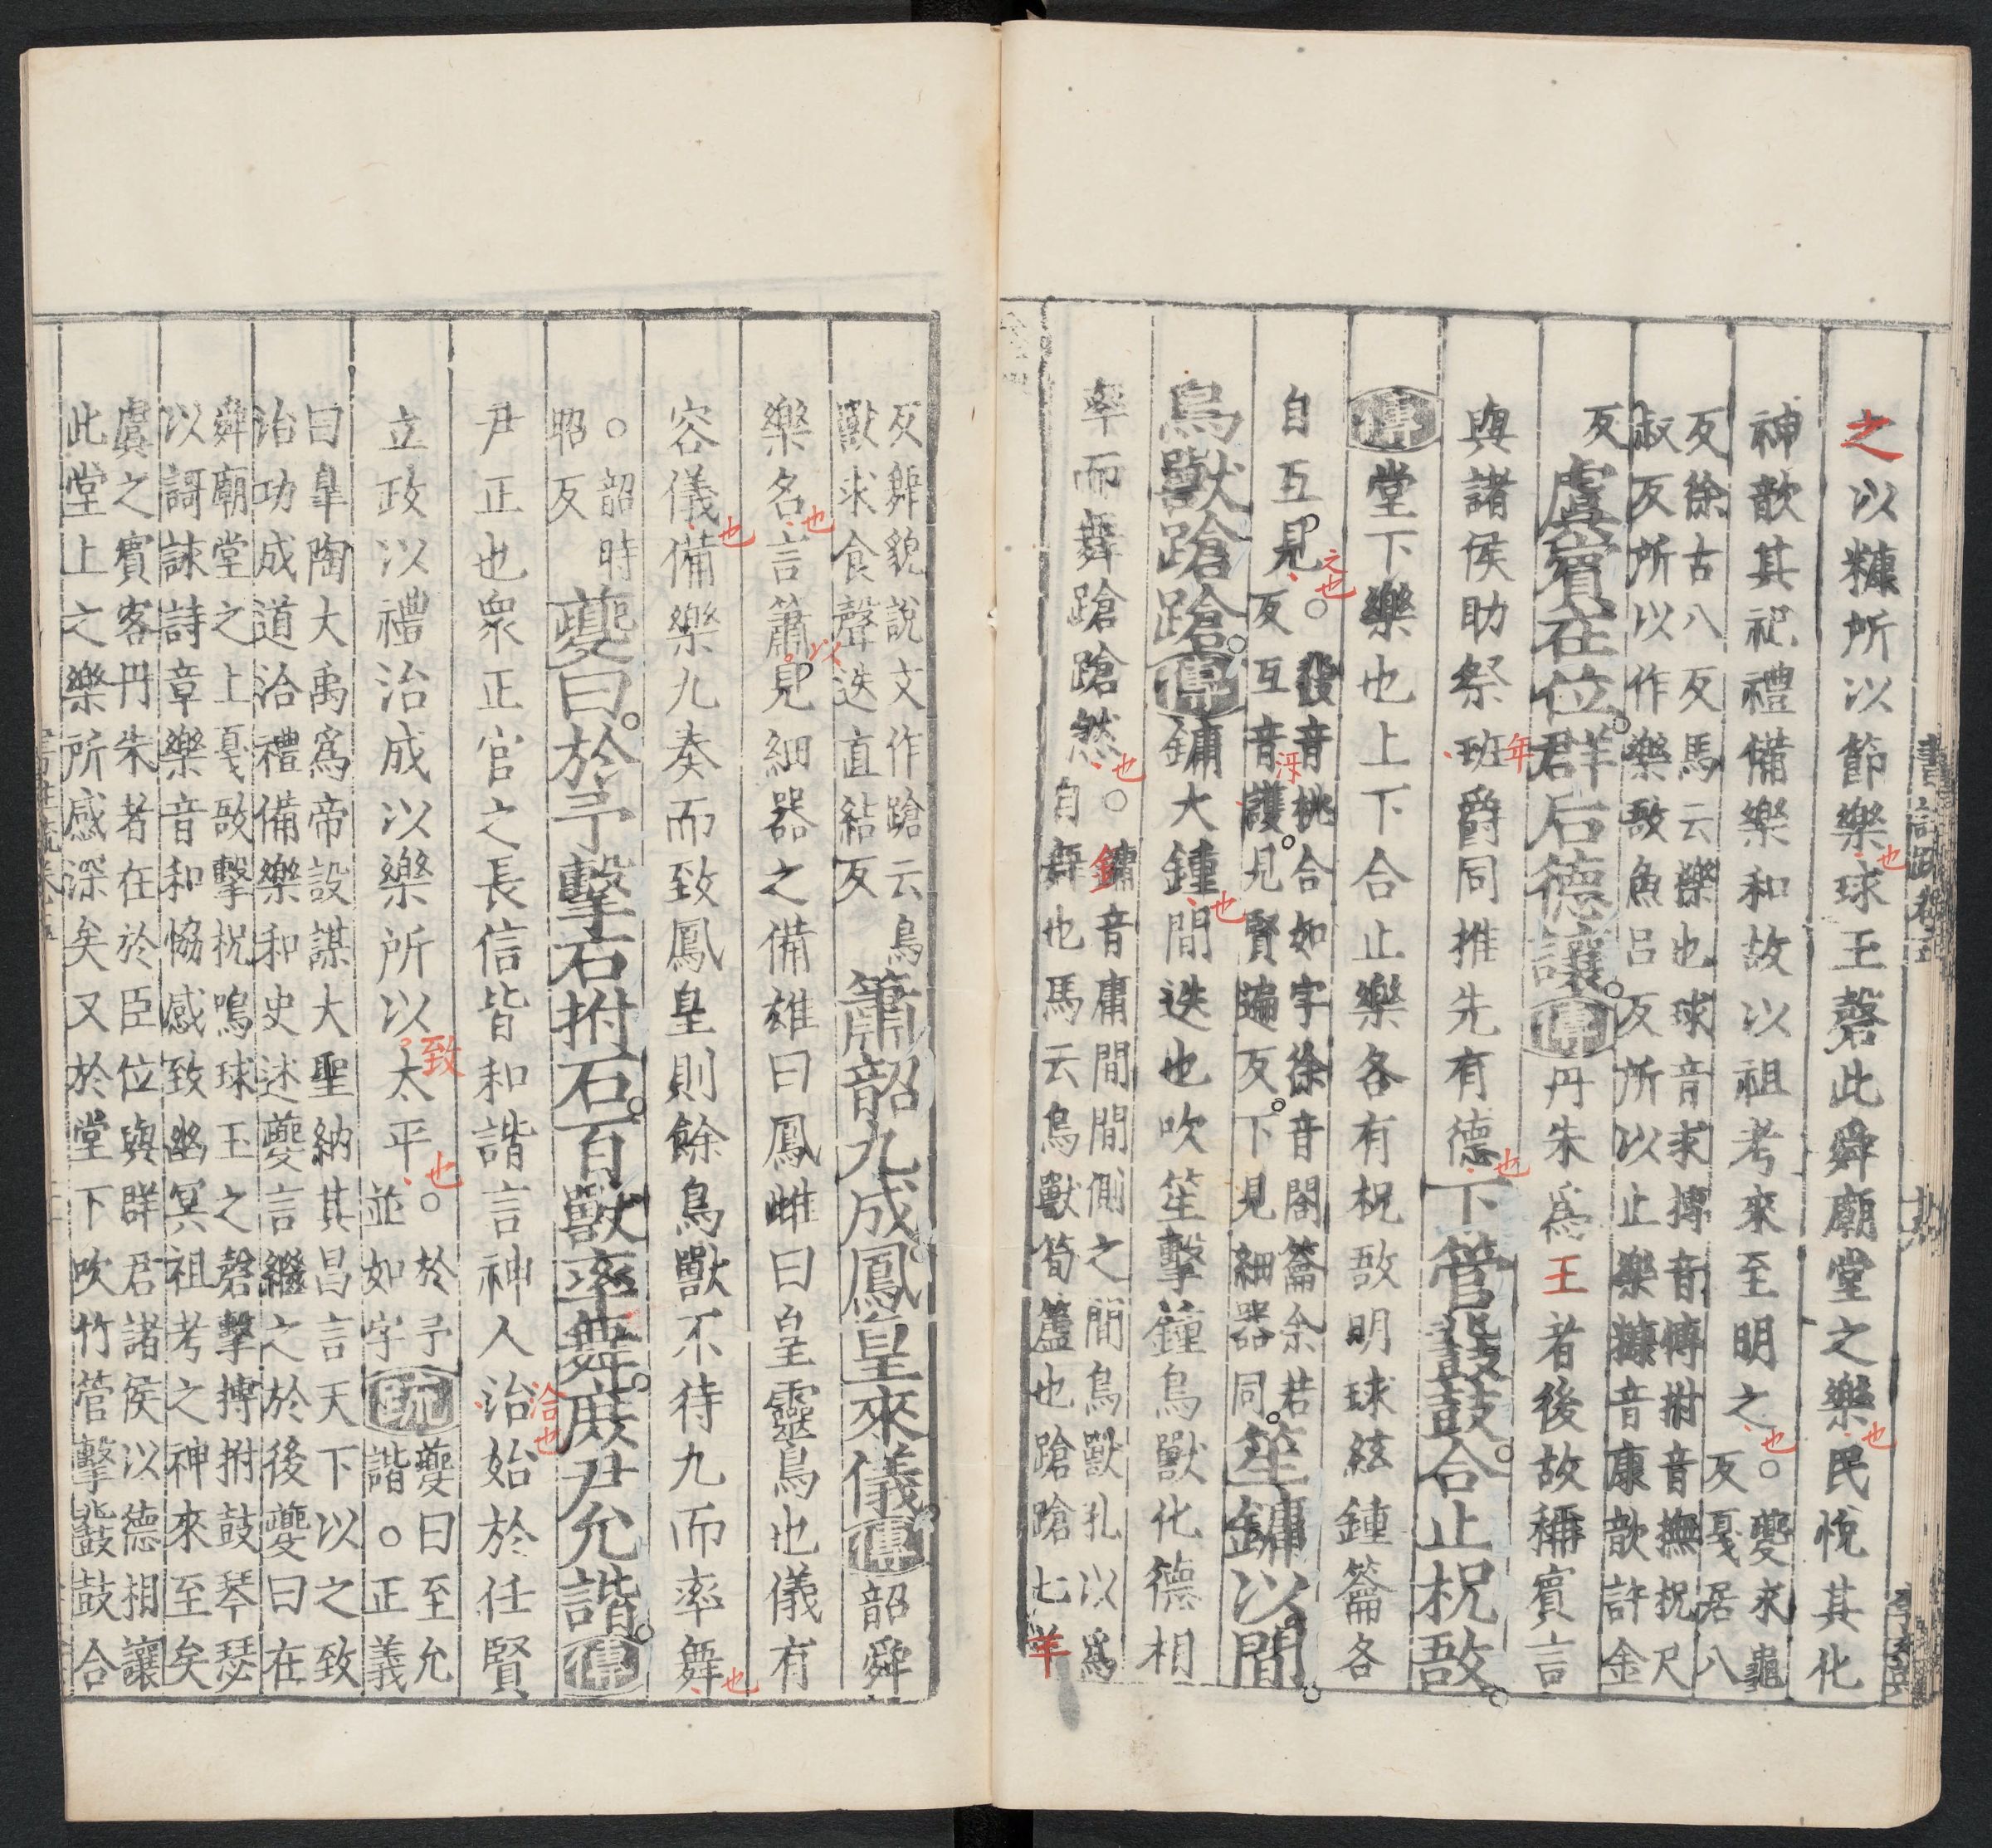 之以糠所以節樂球王磬此舜廟堂之樂民悅其化
也
也
神歆其祀禮備樂和故以祖考來至明之○夔求龜
也
反戛居八
反徐古八反馬云櫟也球音求搏音博拊音撫柷尺
叔反所以作樂敔魚呂反所以止樂糠音康歆許金
反虞賓在位群后德讓傳丹朱爲王者後故稱賓言
與諸侯助祭班爵同推先有德下管鼗鼓合止柷敔
年
也
傳堂下樂也上下合止樂各有柷敔明球絃鍾籥各
自互見○鼗音桃合如字徐音閤籥余若
之也
反互音護見賢遍反下見細器同笙鏞以間
冱
鳥獸蹌蹌傳鏞大鍾間迭也吹笙擊鐘鳥獸化德相
也
率而舞蹌蹌然○鏞音庸間間側之間鳥獸孔以爲
也
自舞也馬云鳥獸筍簴也蹌蹌七羊
反舞貌說文作蹌云鳥
獸求食聲迭直結反簫韶九成鳳皇來儀傳韶舜
樂名言簫見細器之備雄曰鳳雌曰皇靈鳥也儀有
也
以
容儀備樂九奏而致鳳皇則餘鳥獸不待九而率舞
也
也
○韶時
昭反夔曰於予擊石拊石百獸率舞庶尹允諧傳
尹正也衆正官之長信皆和諧言神人治始於任賢
洽也
立政以禮治成以樂所以太平○於予
致
也
並如字疏夔曰至允
諧○正義
曰皐陶大禹爲帝設謀大聖納其昌言天下以之致
治功成道洽禮備樂和史述夔言繼之於後夔曰在
舜廟堂之上戛敔擊柷鳴球玉之磬擊搏拊鼓琴瑟
以謌詠詩章樂音和恊感致幽冥祖考之神來至矣
虞之賓客丹朱者在於臣位與群君諸侯以德相讓
此堂上之樂所感深矣又於堂下吹竹管擊鼗鼓合